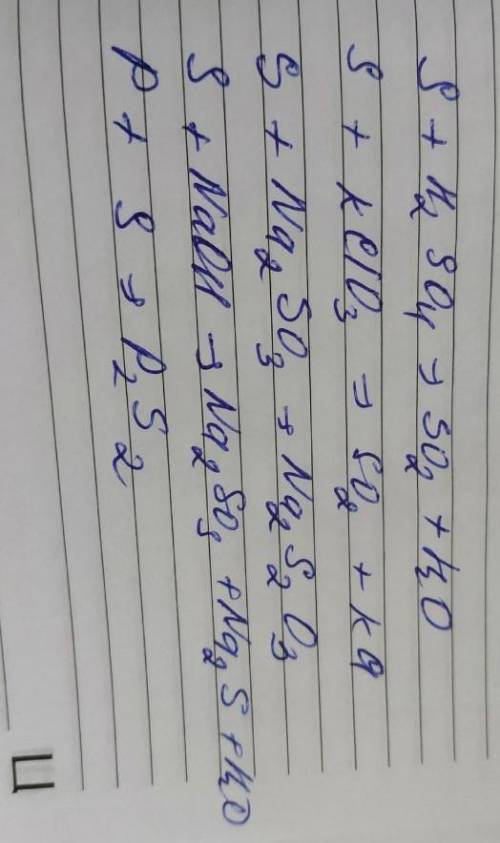 S + H₂SO₄ → SO₂ + H₂O
S + KClO₃ → SO₂ + KCl
S + Na₂SO₃ → Na₂S₂O₃
S + NaOH → Na₂SO₃ + Na₂S + H₂O
P + S → P₂S₂